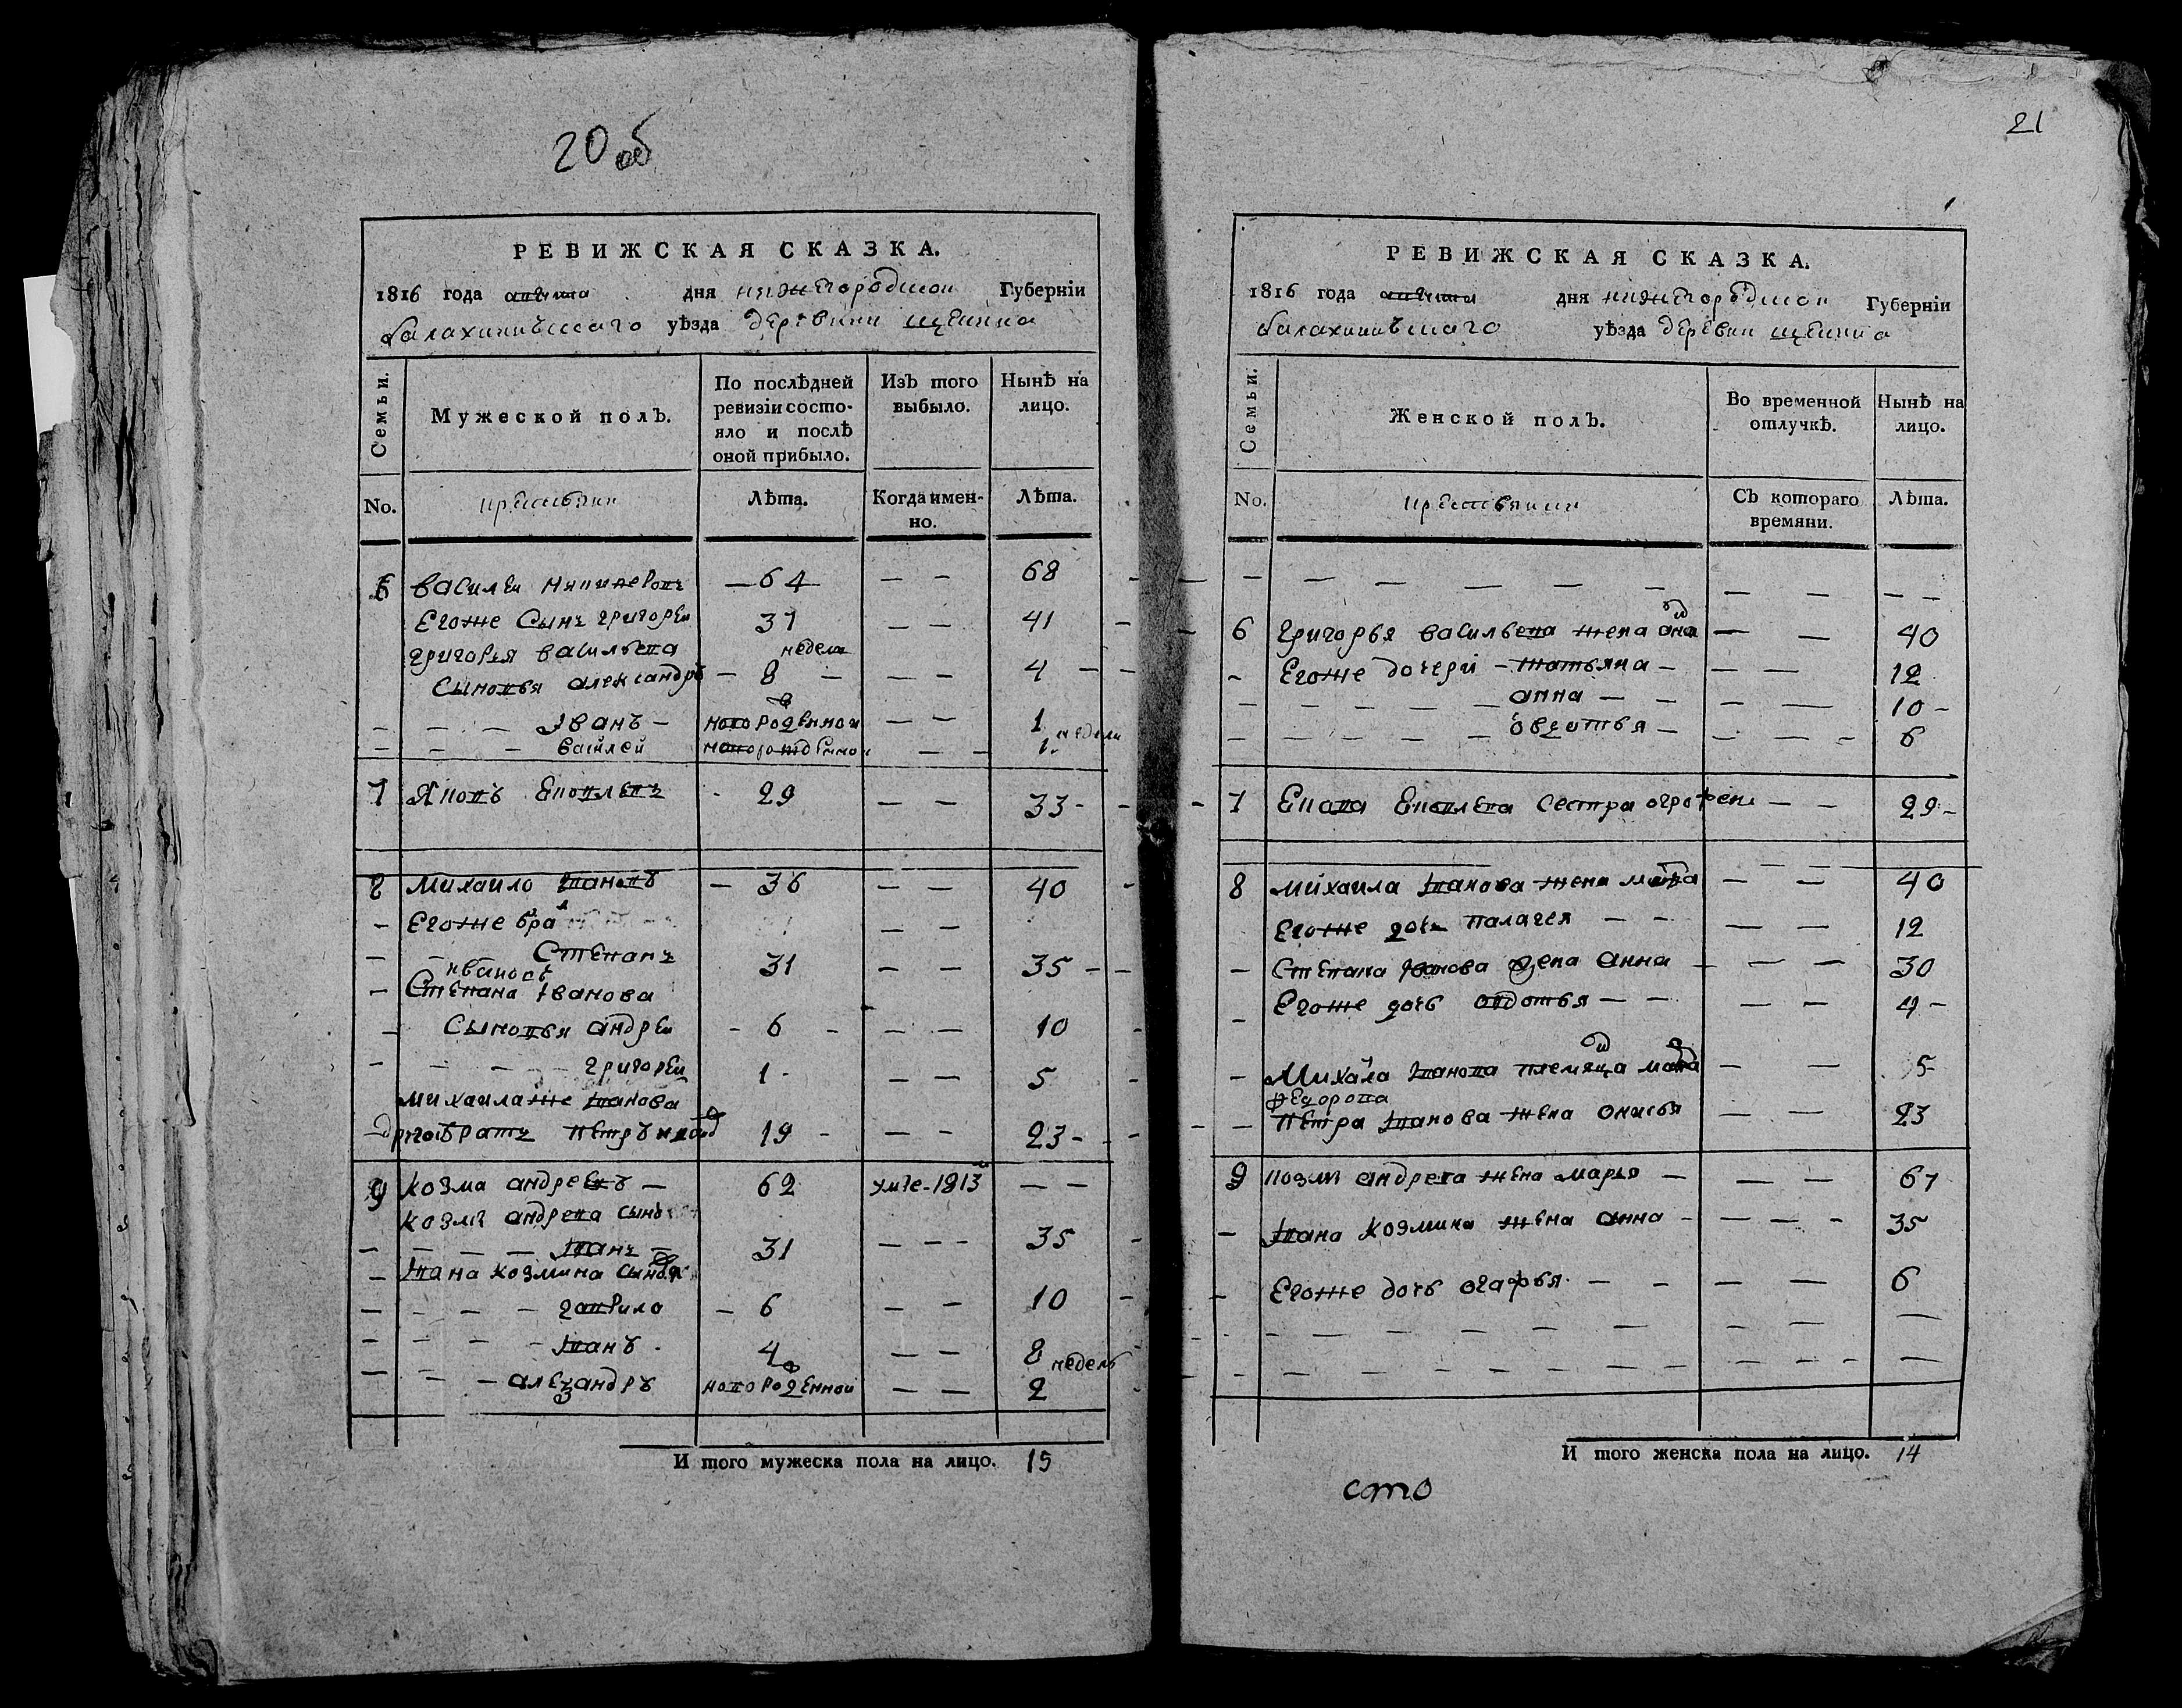 20 об
РЕВИЖСКАЯ СКАЗКА.
1816 года апреля дня нижегородской Губерніи
балахнинъскаго уѣзда деревни щекина
Семьи.
Мужеской полъ.
По послѣдней ревизіи состояло и послѣ оной прибыло.
Изъ того выбыло.
Нынѣ на лицо.
No.
крестьяне
Лѣта.
Когда именно.
Лѣта.
6 василеи — 64 — — 68
Егоже Сынъ григореи 37 — — 41
григорья васильева недель
Сыновья александръ — 8 — 4 — —
— — — Iванъ — новорожденнои — — 1
недели
— — — василеи новорожденнои — — 1
7 Яковъ — 29 — — 33 —
8 михаило Iвановъ — 36 — — 40
— Егоже бра — —
— — Степанъ 31 — — 35 — —
ивановъ
— Степана Iванова
— Сыновья андреи — 6 — — — 10
— — — — григореи 1 — — 5
михаилаже Iванова
другоибратъ Петръ 19 — — — 23 —
9 козма андреевъ — 62 умре — 1813 — —
козмы андреева сынъ
— — — — Iванъ — 31 — — — 35
— Iвана козмина сыновья
— — — — гаврило — 6 — — 10
— — — — Iванъ 4 — — 8
недель
— — — александръ новорожденнои — — 2
И того мужеска пола на лицо. 15
21
РЕВИЖСКАЯ СКАЗКА.
1816 года апреля дня нижегородской Губерніи
балахнинъскаго уѣзда деревни щекина
Семьи.
Женской полъ.
Во временной отлучкѣ.
Нынѣ на лицо.
No.
крестьянки
Съ котораго времяни.
Лѣта.
— — — — — — — — — —
6 григорья васильева жена — — 40
— Егоже дочери — татьяна — — — 12
— — — — — анна — — — — 10 —
— — — — — овдотья — — — — 6
7 сестра огрофена — — 29 —
8 михаила Iванова жена — — 40
Егоже дочь палагея — — — — 12
— Степана Iванова жена анна — — — 30
— Егоже дочь овдотья — — — — 4 —
— Михаила Iванова племяница — — 5
федорова
— петра Iванова жена онисья — — 23
9 козмы андреева жена марья — — — 67
— Iвана козмина жена анна — — — — 35
— Егоже дочь огафья — — — — 6
— — — — — — — — — —
— — — — — — — — — —
И того женска пола на лицо. 14
сто